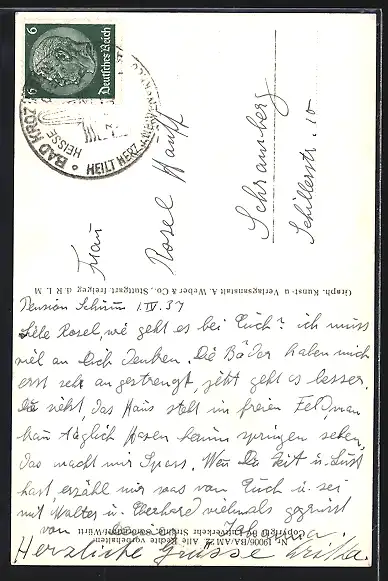 6 Deutsches Reich 6
BAD KROZINGEN
HEILT HERZ
HEISSE
Frau
Rosel Hauff
Schramberg
Schillerstr. 10
Graph. Kunst- u. Verlagsanstalt A. Weber & Co., Stuttgart. freigeg. d. R L M
Pension Schirm 1. IV. 37
Liebe Rosel, wie geht es bei Euch? ich muss
viel an Dich denken. Die Bäder haben mich
erst sehr angestrengt, jetzt geht es besser.
Du siehst, das Haus steht im freien Feld, man
kann täglich Hasen herum springen sehen,
das macht mir Spass. Wenn Du Zeit u. Lust
hast, erzähl mir was von Euch u. sei
mit Walter u. Eberhard vielmals gegrüsst
von
Herzliche Grüsse
Alle Rechte vorbehalten